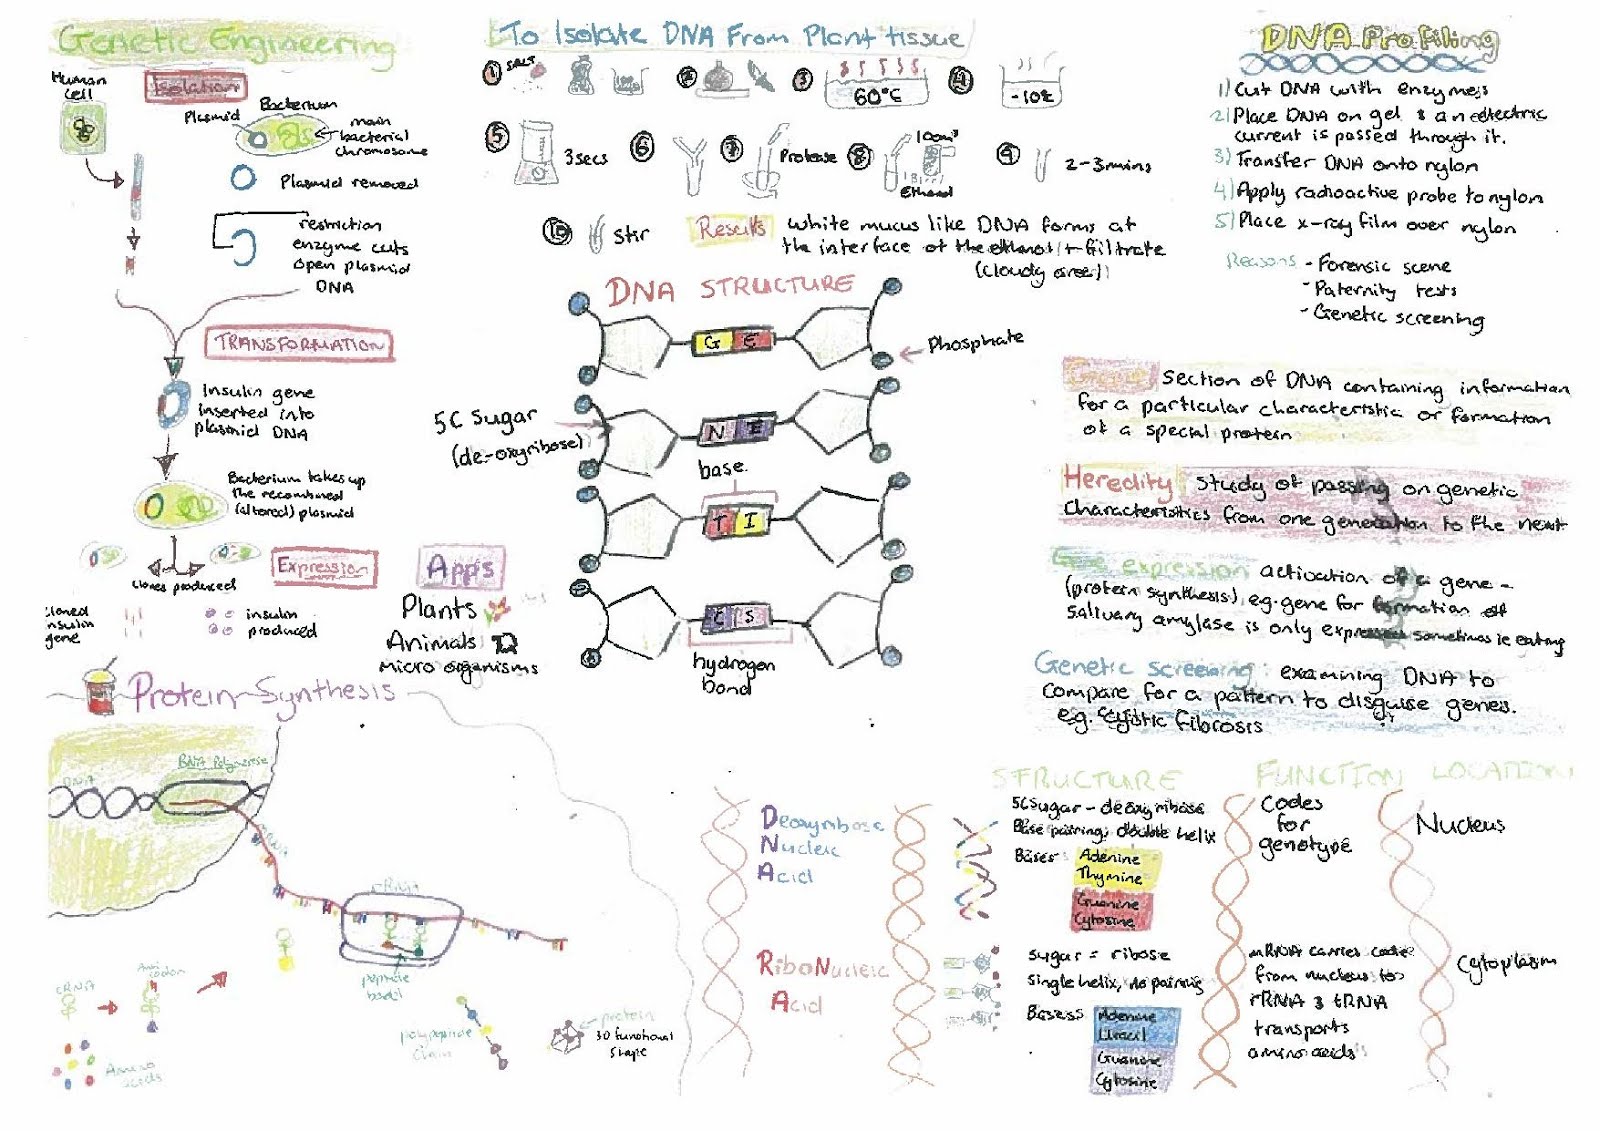 Genetic Engineering
Human
Cell
Isolation
Plasmid
Bacterium
main
bacterial
chromosome
Plasmid removed
restriction
enzyme cuts
open plasmid
DNA
TRANSFORMATION
Insulin gene
inserted into
plasmid DNA
Bacterium takes up
the recombined
(altered) plasmid
Expression
clones produced
cloned
insulin
gene
insulin
produced
Apps
Plants
Animals
Micro organisms
To Isolate DNA From Plant tissue
1 SALT
2
3 60°C
4 -10%
5 3secs
6
7 Protease
8 100m³
Ethanol
9 2-3mins
10 Stir
Results white mucus like DNA forms at
the interface of the ethanol + filtrate
(cloudy area)
DNA STRUCTURE
G E
Phosphate
5C Sugar
(de-oxyribose)
N E
base
T I
C S
hydrogen
bond
DNA Profiling
1) Cut DNA with enzymess
2) Place DNA on gel & an edectric
current is passed through it.
3) Transfer DNA onto nylon
4) Apply radioactive probe to nylon
5) Place x-ray film over nylon
Reasons - Forensic scene
- Paternity tests
- Genetic screening
Section of DNA containing information
for a particular characteristic or formation
of a special protein
Heredity study of passing on genetic
characteristics from one generation to the next
Gene expression activation of a gene -
(protein synthesis), eg. gene for formation of
salivary amylase is only expressed sometimes ie eating
Genetic screening: examining DNA to
compare for a pattern to disguise genes.
e.g. cystic fibrosis
Protein Synthesis
DNA
RNA Polymerase
mRNA
rRNA
peptide
bond
tRNA
Anti
codon
Amino
acids
polypeptide
chain
protein
3D functional
shape
Deoxyribose
Nucleic
Acid
RiboNucleic
Acid
STRUCTURE FUNCTION LOCATION
5C Sugar - deoxyribose
Base pairing, double helix
Bases
Adenine
Thymine
Guanine
Cytosine
Codes
for
genotype
Nucleus
Sugar = ribose
Single helix, no pairing
Basess
Adenine
Uracil
Guanine
Cytosine
mRNA carries code
from nucleus to
rRNA & tRNA
transports
amino acids
Cytoplasm